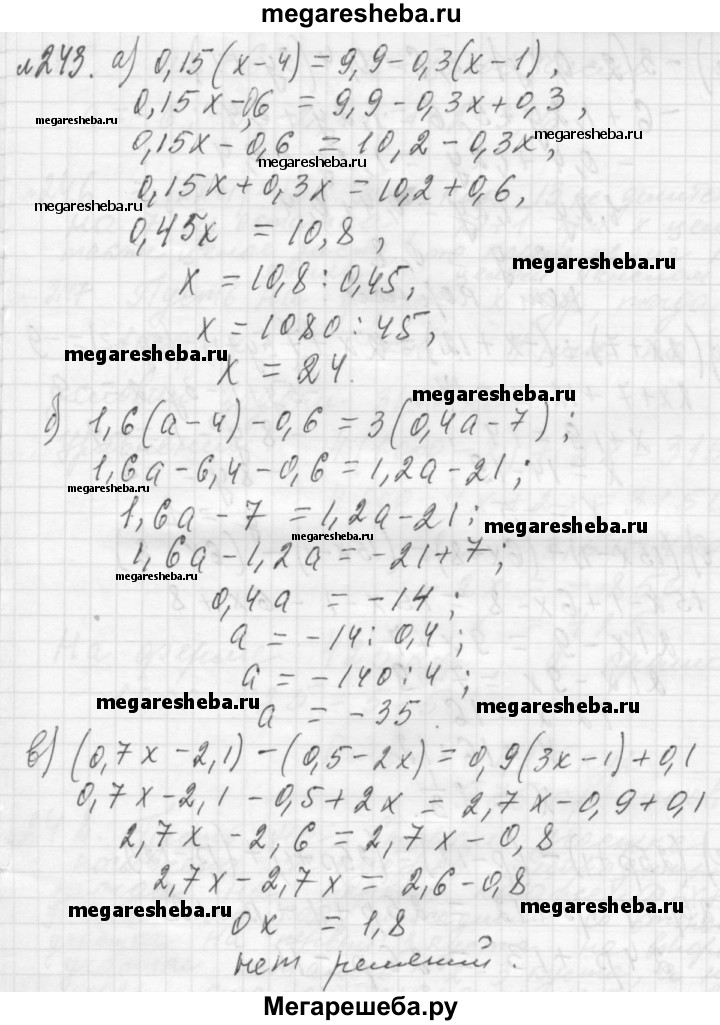 megaresheba.ru
№243. а) 0,15(x-4) = 9,9-0,3(x-1),
0,15x-0,6 = 9,9-0,3x+0,3,
megaresheba.ru
megaresheba.ru
0,15x-0,6 = 10,2-0,3x,
megaresheba.ru
0,15x+0,3x = 10,2+0,6,
megaresheba.ru
0,45x = 10,8,
megaresheba.ru
x = 10,8 : 0,45,
x = 1080 : 45,
megaresheba.ru
x = 24.
megaresheba.ru
б) 1,6(a-4)-0,6 = 3(0,4a-7);
1,6a-6,4-0,6 = 1,2a-21;
megaresheba.ru
1,6a-7 = 1,2a-21;
megaresheba.ru
megaresheba.ru
1,6a-1,2a = -21+7;
megaresheba.ru
0,4a = -14;
a = -14 : 0,4;
a = -140 : 4;
megaresheba.ru
megaresheba.ru
a = -35.
в) (0,7x-2,1)-(0,5-2x) = 0,9(3x-1)+0,1
0,7x-2,1-0,5+2x = 2,7x-0,9+0,1
2,7x-2,6 = 2,7x-0,8
2,7x-2,7x = 2,6-0,8
megaresheba.ru
megaresheba.ru
0x = 1,8
нет решений.
Мегарешеба.ру